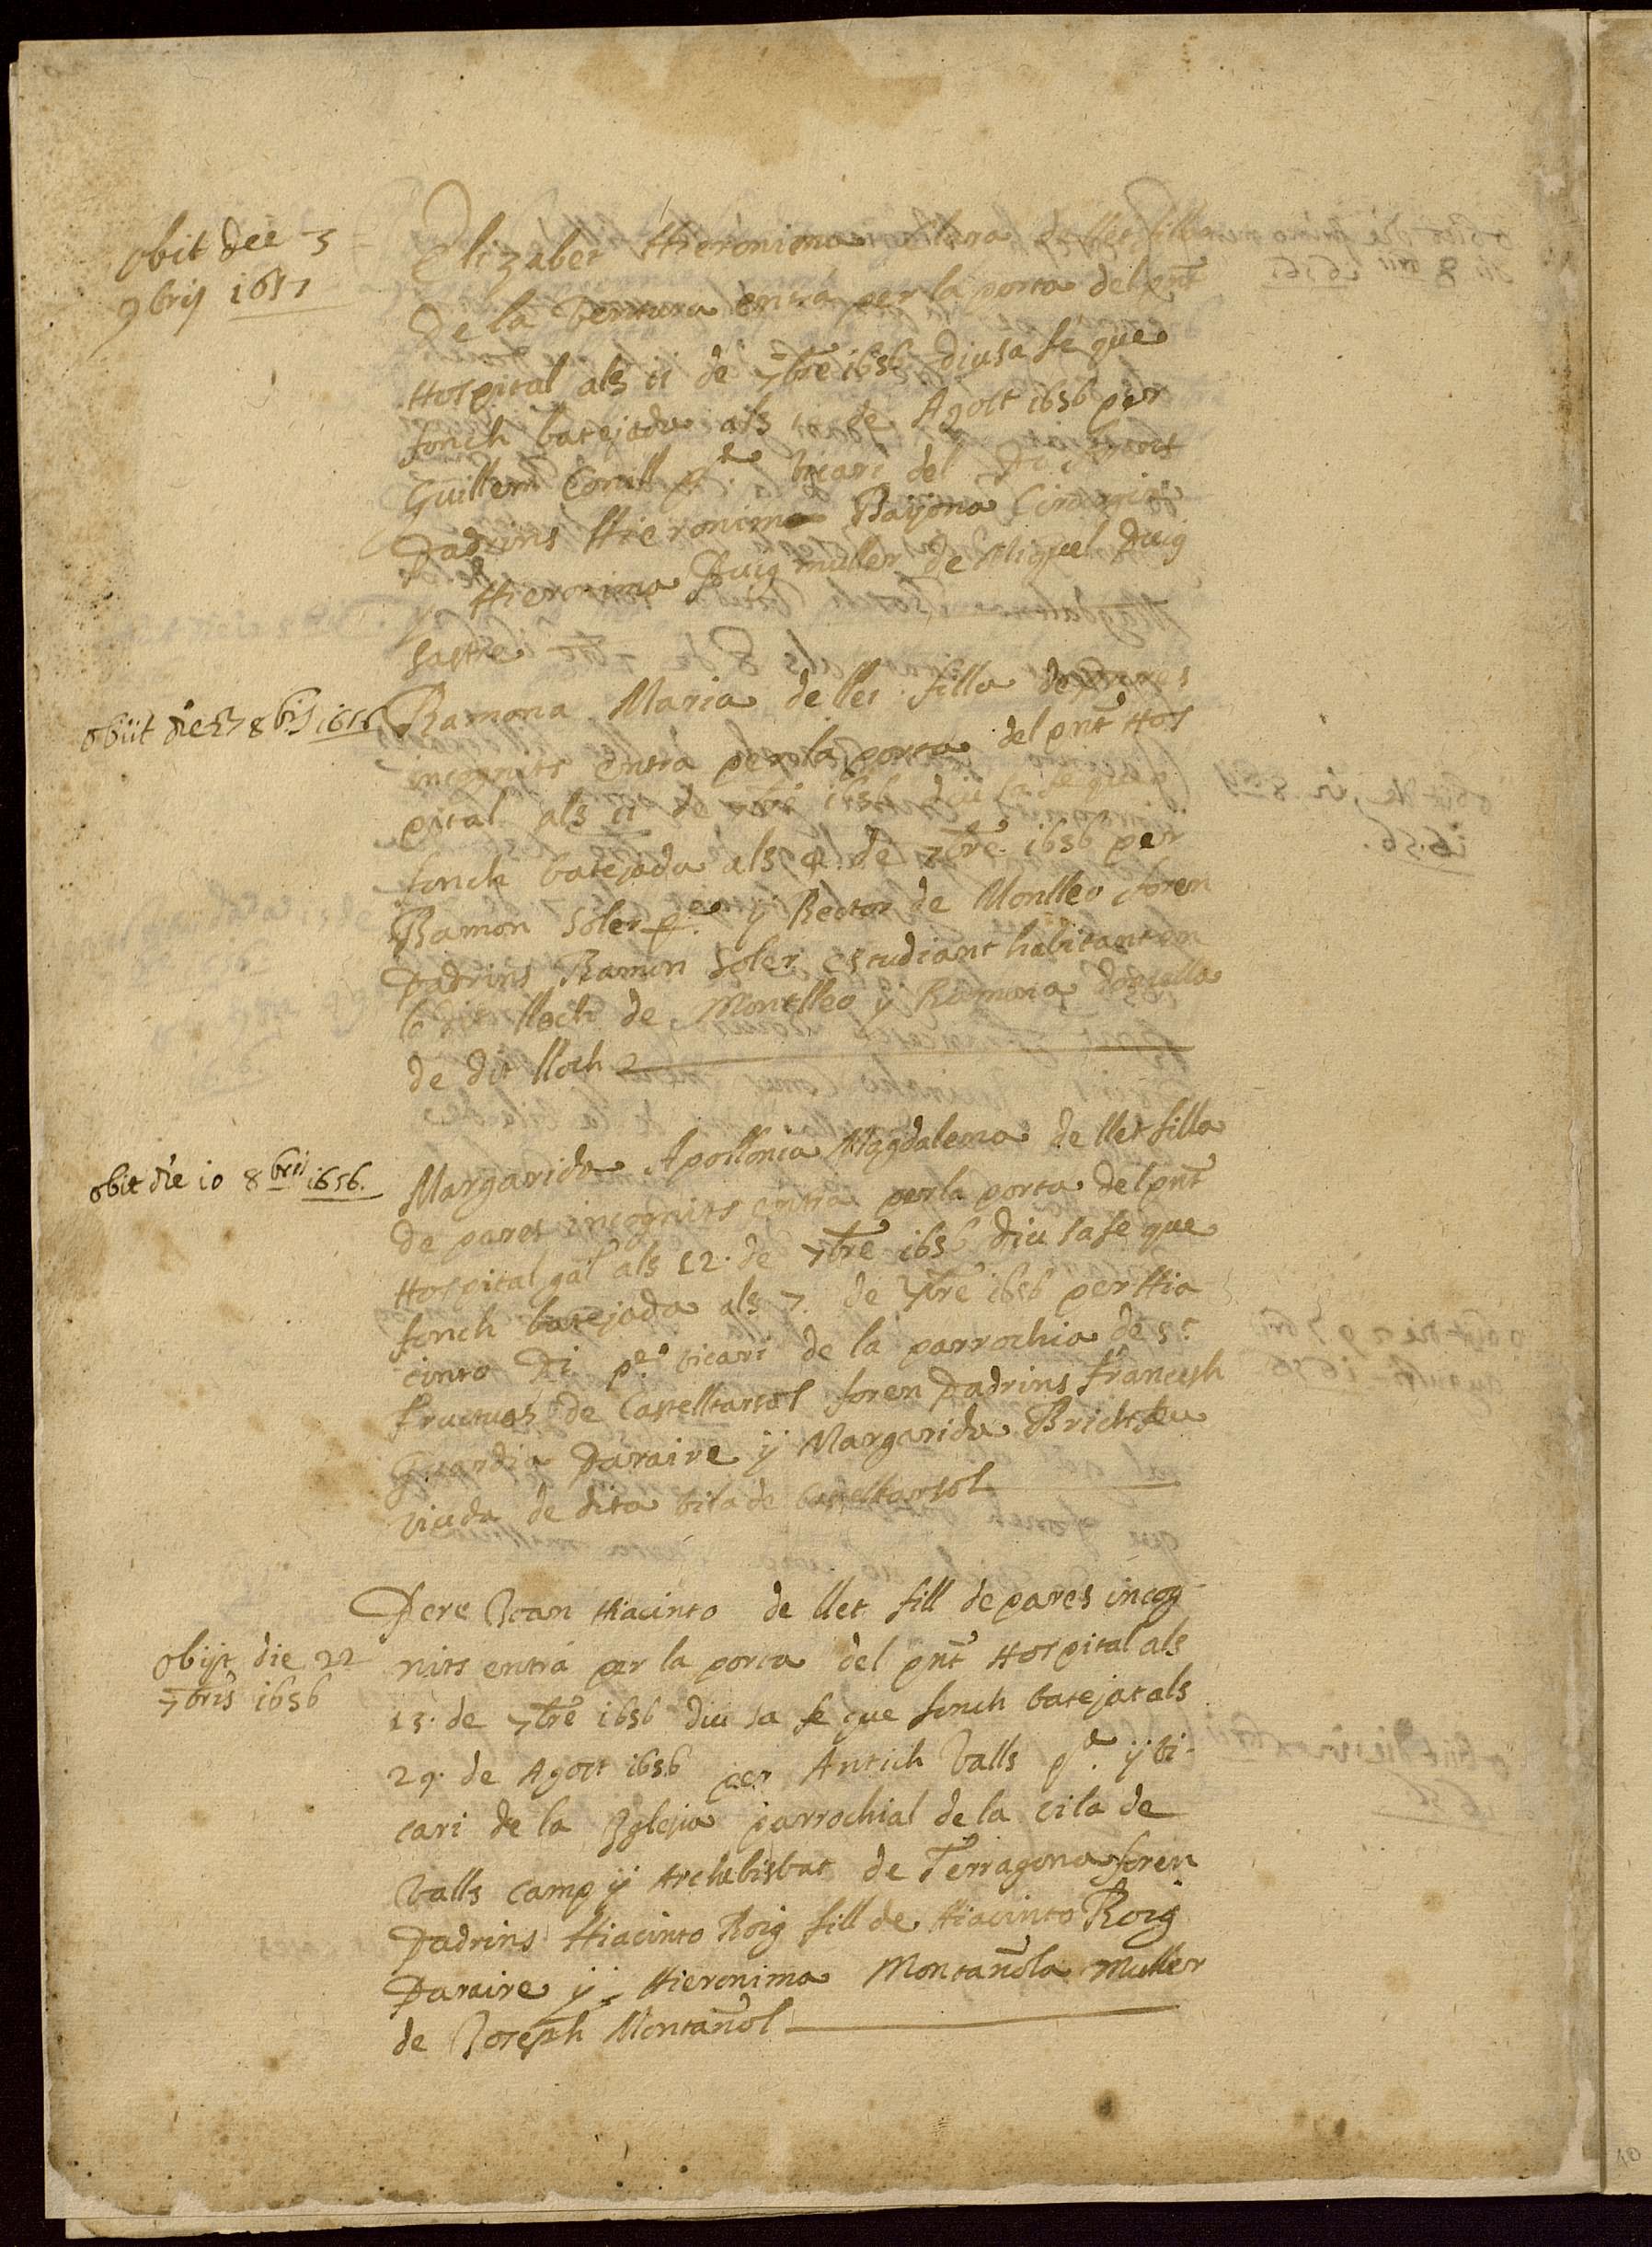 obit dee 3
9bris 1657
Elizabet Hieronima Clara de llet filla
de la Ventura entrá per la porta del pnt
Hospital als 11 de 7bre 1656 diu sa fe que
fonch batejada als de Agost 1656 per
Guillem Cornill pre. vicari del Pi
Padrins Hieronimo Bayona
y Hieronima Puig muller de Miquel Puig
sastre
obiit die 27 8bris 1656
Ramona Maria de llet filla de pares
incognits entrá per la porta del pnt Hos
pital als 11 de 7bre 1656 diu sa fe que
fonch batejada als 4 de 7bre 1656 per
Ramon Soler pre. y Rector de Montlleo foren
Padrins Ramon Soler estudiant habitant en
lo dit lloch de Montlleo y Ramona donsella
de dit lloch
obit die 10 8bris 1656.
Margarida Apollonia Magdalena de llet filla
de pares incognits entrá per la porta del pnt
Hospital gal als 12. de 7bre 1656 diu sa fe que
fonch batejada als 7. de 7bre 1656 per Hia
cinto Di pre. vicari de la parrochia de St.
Fructuos de Castelltarsol foren Padrins Francesch
Guardia Paraire y Margarida
viuda de dita vila de Castelltarsol
obijt die 22
7bris 1656
Pere Joan Hiacinto de llet fill de pares incog
nits entrá per la porta del pnt Hospital als
13. de 7bre 1656 diu sa fe que fonch batejat als
29. de Agost 1656 per Antich Valls pre. y vi-
cari de la Iglesia parrochial de la vila de
Valls camp y Archebisbat de Terragona foren
Padrins Hiacinto Roig fill de Hiacinto Roig
Paraire y Hieronima Montañola muller
de Joseph Montañol